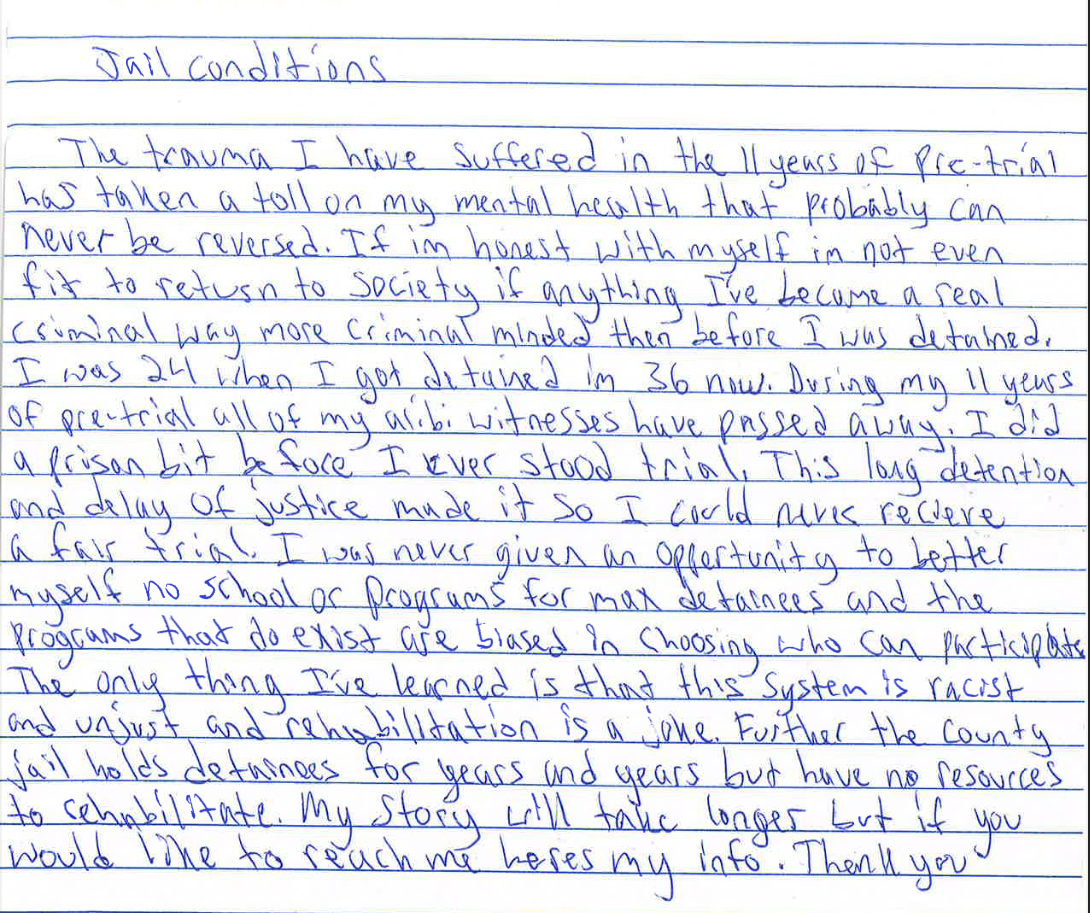 Jail conditions
The trauma I have suffered in the 11 years of Pre-trial
has taken a toll on my mental health that probably can
never be reversed. If im honest with myself im not even
fit to return to society if anything I've become a real
criminal way more criminal minded then before I was detained.
I was 24 when I got detained im 36 now. During my 11 years
of pre-trial all of my alibi witnesses have passed away. I did
a prison bit before I ever stood trial. This long detention
and delay of justice made it so I could never recieve
a fair trial. I was never given an opportunity to better
myself no school or programs for max detainees and the
programs that do exist are biased in choosing who can participate
The only thing I've learned is that this system is racist
and unjust and rehabilitation is a joke. Further the County
jail holds detainees for years and years but have no resources
to rehabilitate. My story will take longer but if you
would like to reach me heres my info. Thank you